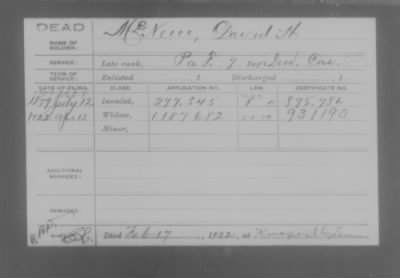 DEAD
NAME OF SOLDIER: McNeece, David H.
SERVICE: Late rank, Pvt. F. 7 Reg't Ind. Cav.
TERM OF SERVICE: Enlisted , 1 Discharged , 1
DATE OF FILING. CLASS. APPLICATION NO. LAW. CERTIFICATE NO.
1879 July 12 Invalid, 297.545 875,786
1922 Apr 15 Widow, 1187682 931190
Minor,
ADDITIONAL SERVICES:
REMARKS:
Died Feb 17, 1922, at Knoxville Tenn